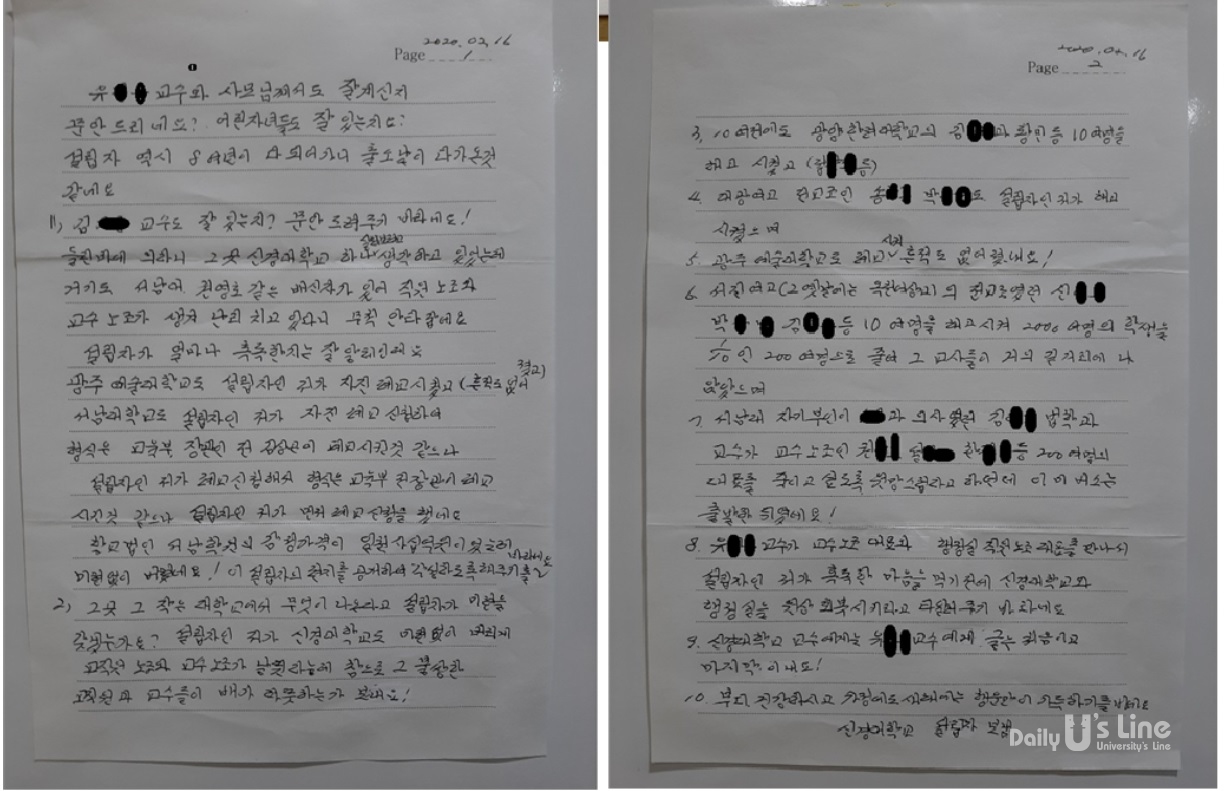 2020.02.16
Page 1
유 교수와 사모님께서도 잘계신지
문안 드리네요? 어린자녀들도 잘 있는지요?
설립자 역시 8여년이 다 되어가니 출소날이 다가온것
같네요
1), 김 교수도 잘 있는지? 문안 드려주기 바라네요!
들린바에 의하니 그곳 신경대학교 하나 생각하고 있었는데
거기도 서남대 같은 배신자가 있어 직원 노조와
교수 노조가 생겨 난리 치고 있다니 무척 안타깝네요
설립자가 얼마나 혹독한지는 잘 알터인데요
광주 예술대학교도 설립자인 저가 자진 폐교시켰고 (흔적도 없어졌고)
서남대학교도 설립자인 저가 자진 폐교 신청하여
형식은 교육부 장관인 전 김상곤이 폐교시킨것 같으나
설립자인 저가 폐교신청해서 형식은 교육부 전장관이 폐교
시킨것 같으나 설립자인 저가 먼저 폐교 신청을 했네요
학교법인 서남학원의 감정가격이 일천사십억원이 었는데
미련없이 버렸네요! 이 설립자의 편지를 공개하여 각성하도록 해주기를 바라네요
2) 그곳 그 작은 대학교에서 무엇이 나온다고 설립자가 미련을
갖겠는가요? 설립자인 저가 신경대학교도 미련 없이 버리게
교직원 노조와 교수노조가 날뛴다는데 참으로 그 불쌍한
교직원과 교수들이 배가 따뜻하는가 보네요!
2020.02.16
Page 2
3. 10여전에도 광양한려대학교의 김 과 등 10여명을
해고 시켰고
4. 대광여고 전교조인 송 박 도 설립자인 저가 해고
시켰으며
5. 광주 예술대학교도 폐교시켜 흔적도 없어졌네요!
6. 서진여고(그 옛날에는 옥천여상고)의 전교조였던 신
박 김 등 10여명을 해고시켜 2000여명의 학생을
1/10인 200여명으로 줄여 그 교사들이 거의 길거리에 나
앉았으며
7. 서남대 자기부인이 과 의사였던 김 법학과
교수가 교수노조인 설 한 등 200여명의
대표를 죽이고 싶도록 원망스럽다고 하던데 이미 버스는
출발한 뒤였네요!
8. 유 교수가 교수노조 대표와 행정실 직원노조 대표를 만나서
설립자인 저가 혹독한 마음을 먹기 전에 신경대학교와
행정실을 원상 회복시키라고 주기 바라네요
9. 신경대학교 교수에게는 유 교수에게 글은 처음이고
마지막이네요!
10. 부디 건강하시고 가정에도 새해에는 행운만이 가득하기를 바라네요
신경대학교 설립자 보냄
Daily U's Line
University's Line